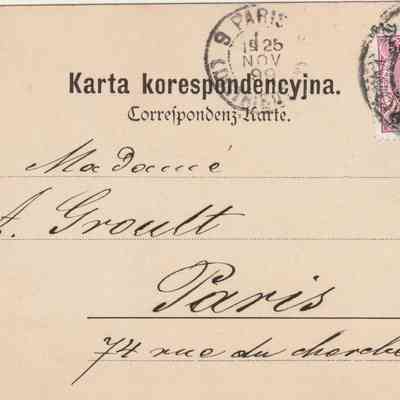 9 PARIS
1925
NOV
99
Karta korespondencyjna.
Correspondenz-Karte.
Madame
A. Groult
Paris
74 rue du cherche